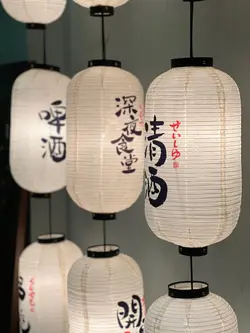 啤酒
深夜
食堂
清酒
せいしゆ
開